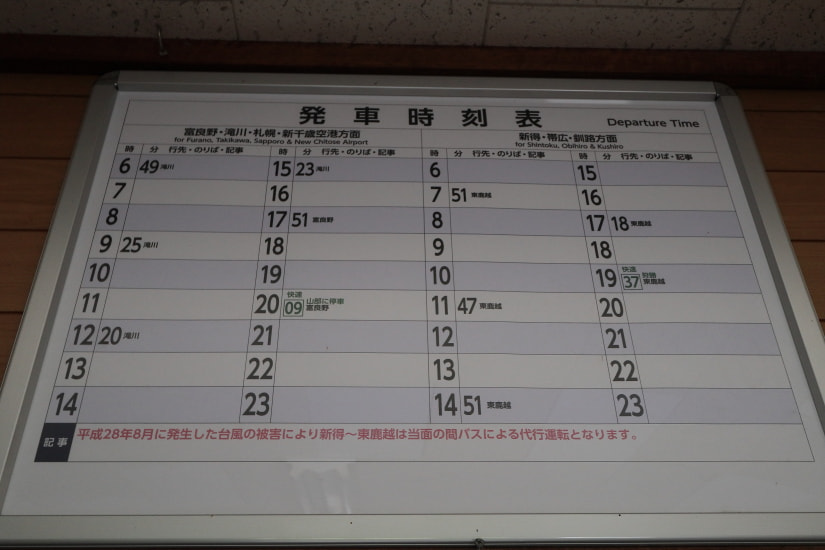 発車時刻表 Departure Time
富良野・滝川・札幌・新千歳空港方面
for Furano, Takikawa, Sapporo & New Chitose Airport
新得・帯広・釧路方面
for Shintoku, Obihiro & Kushiro
時 分 行先・のりば・記事 時 分 行先・のりば・記事 時 分 行先・のりば・記事 時 分 行先・のりば・記事
6 49 滝川 15 23 滝川 6 15
7 16 7 51 東鹿越 16
8 17 51 富良野 8 17 18 東鹿越
9 25 滝川 18 9 18
10 19 10 19 快速 37 狩勝 東鹿越
11 20 快速 09 山部に停車 富良野 11 47 東鹿越 20
12 20 滝川 21 12 21
13 22 13 22
14 23 14 51 東鹿越 23
記事 平成28年8月に発生した台風の被害により新得～東鹿越は当面の間バスによる代行運転となります。